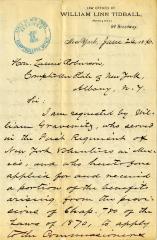 LAW OFFICE OF
WILLIAM LINN TIDBALL,
Broadway,
New York, June 186
Hon. Lucius Robinson
Comptroller State of New York,
Albany, N. Y.
Sir:
I am requested by Wil-
liam who served
in the Regiment of
New York Volunteers in Mex-
ico, and who heretofore
applied for and received
a portion of the benefits
arising from the provis-
ions of Chap. of the
laws of 1870, to apply
to the Commissioners